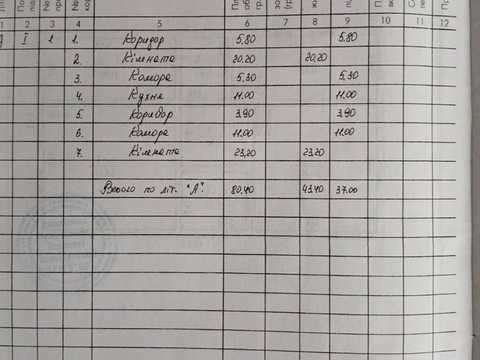 1 2 3 4 5 6 7 8 9 10 11 12
I 1 1. Коридор 5,80 5,80
2. Кімната 20,20 20,20
3. Комора 5,30 5,30
4. Кухня 11.00 11.00
5. Коридор 3,90 3,90
6. Комора 11.00 11.00
7. Кімната 23,20 23,20
Всього по літ. "А". 80,40 43,40 37.00